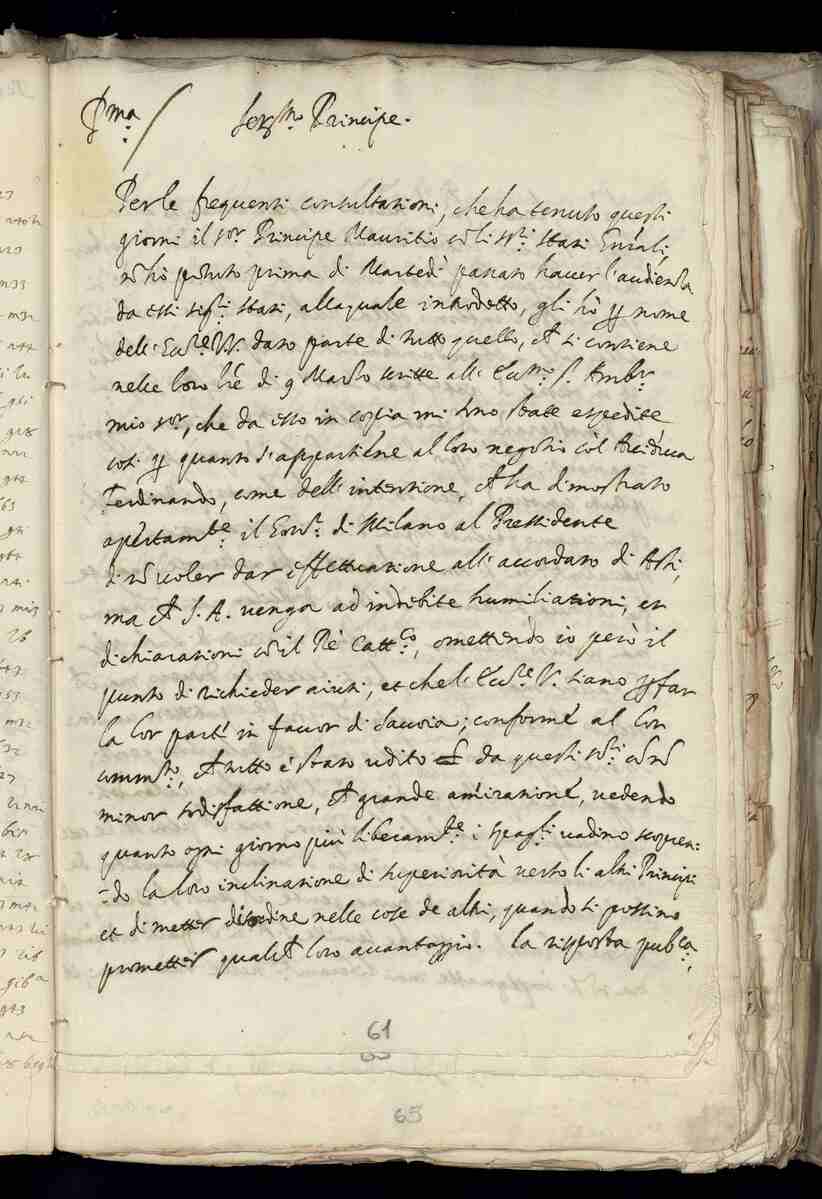 P.ma
Ser.mo Principe.
Per le frequenti consultationi, che ha tenuto questi
giorni il s.or Principe Mauritio cõ li s.ri Stati Gñrali,
nõ hò potuto prima di Martedì passato hauer l'audienza
da essi sig.ri Stati, alla quale introdotto, gli hò ꝑ nome
dell'Ecc.e V.V. dato parte di tutto quello, ch̃ si contiene
nelle loro lr̃e di 9 Marzo scritte all'Ecc.mo s. Amb.r
mio s.or, che da esso in copia mi sono state espedite
così ꝑ quanto s'appartiene al loro negotio cõl Arciduca
Ferdinando, come dell'intentione, ch̃ ha dimostrato
apertam.te il Gou.r di Milano al Pressidente
di nõ uoler dar effettuatione all'accordato di Asti,
ma ch̃ S. A. uenga ad indebite humiliationi, et
dichiarationi cõ il Rè Catt.co, omettendo io però il
punto di richieder aiuti, et che l'Ecc.e V. siano ꝑ far
la lor parte in fauor di Sauoia; conforme al lor
comm.to, ch̃ tutto è stato udito da questi s.ri cõ nõ
minor sodisfattione, ch̃ grande amiratione, uedendo
quanto ogni giorno più liberam.te i Spag.li uadino scopren:
-do la loro inclinatione di superiorità uerso li altri Principi
et di metter disordine nelle cose de altri, quando si possino
prometter qualch̃ loro auantaggio. La risposta pub.ca,
61
65